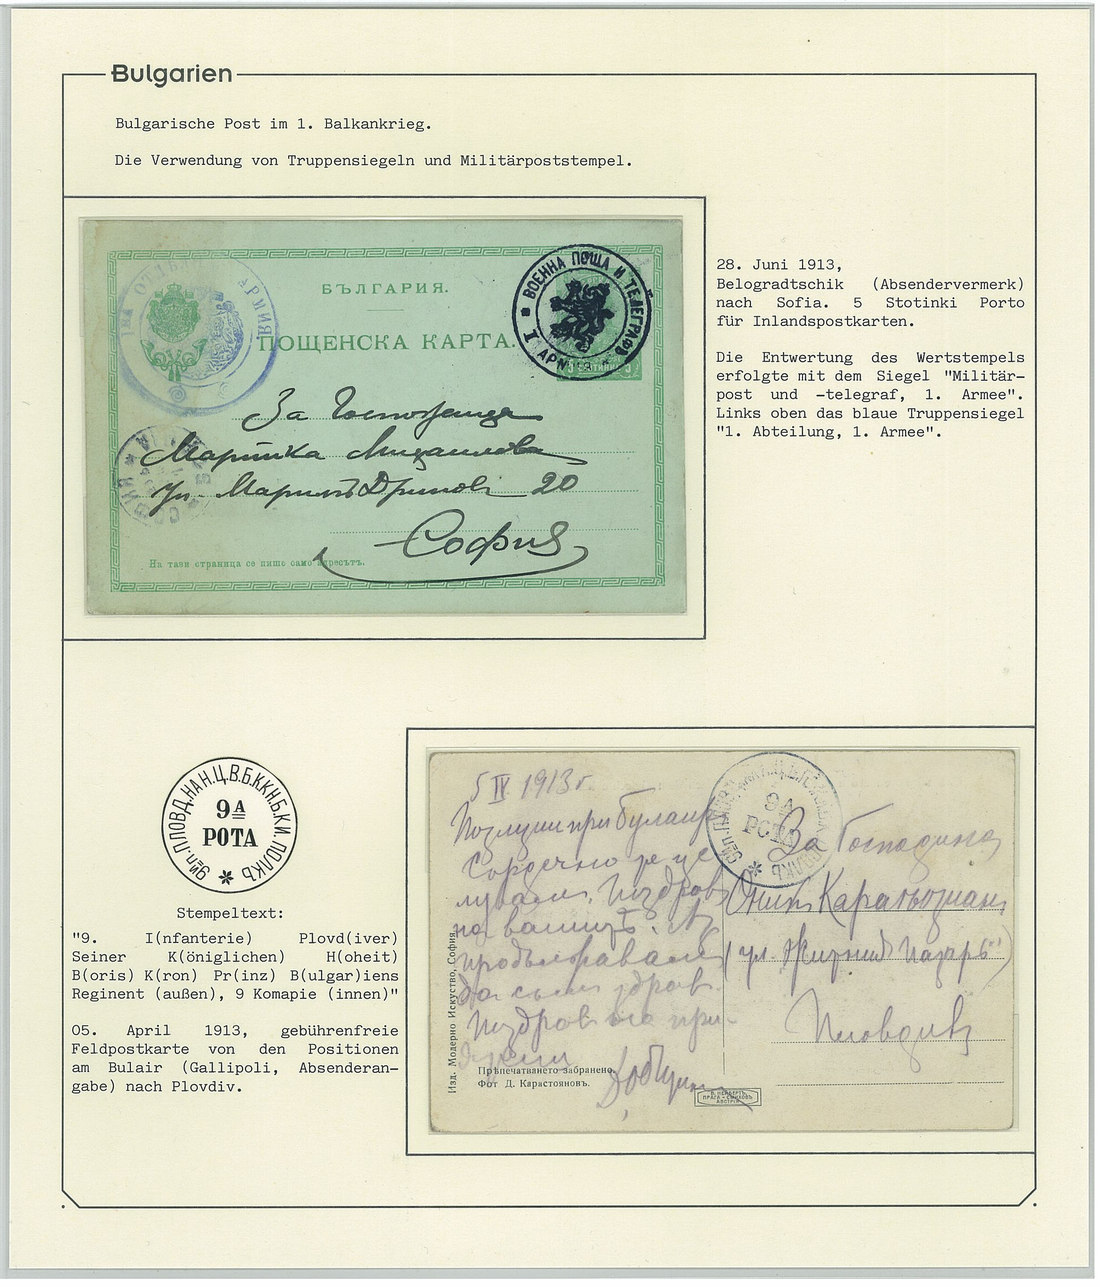 Bulgarien
Bulgarische Post im 1. Balkankrieg.
Die Verwendung von Truppensiegeln und Militärpoststempel.
БЪЛГАРИЯ.
ПОЩЕНСКА КАРТА.
ВОЕННА ПОЩА И ТЕЛЕГРАФЪ
I АРМИЯ
АРМИЯ
За Госпожица
Марийка Михаилова
ул. Маринъ Дриновъ 20
София
СОФИЯ
На тази страница се пише само адресътъ.
28. Juni 1913,
Belogradtschik (Absendervermerk)
nach Sofia. 5 Stotinki Porto
für Inlandspostkarten.
Die Entwertung des Wertstempels
erfolgte mit dem Siegel "Militär-
post und -telegraf, 1. Armee".
Links oben das blaue Truppensiegel
"1. Abteilung, 1. Armee".
9ИП.ПЛОВД.НАН.Ц.В.Б.ККН.Б.КИ.ПОЛКЪ
9А
РОТА
Stempeltext:
"9. I(nfanterie) Plovd(iver)
Seiner K(öniglichen) H(oheit)
B(oris) K(ron) Pr(inz) B(ulgar)iens
Reginent (außen), 9 Komapie (innen)"
05. April 1913, gebührenfreie
Feldpostkarte von den Positionen
am Bulair (Gallipoli, Absenderan-
gabe) nach Plovdiv.
5 IV 1913 г.
Позиции при Булаир
Сърдечно
Поздрав
на
продължавам
да съм здрав.
Поздрав
9А
РОТА
За Господина
Оник Карагьозиан
(ул. Житний пазаръ")
Пловдив
Изд. Модерно Искуство, София.
Прѣпечатването забранено.
Фот Д. Карастояновъ.